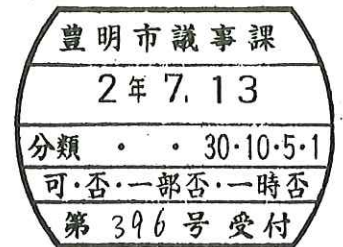 豊明市議事課
2年7.13
分類 ・ ・ 30・10・5・1
可・否・一部否・一時否
第396号受付